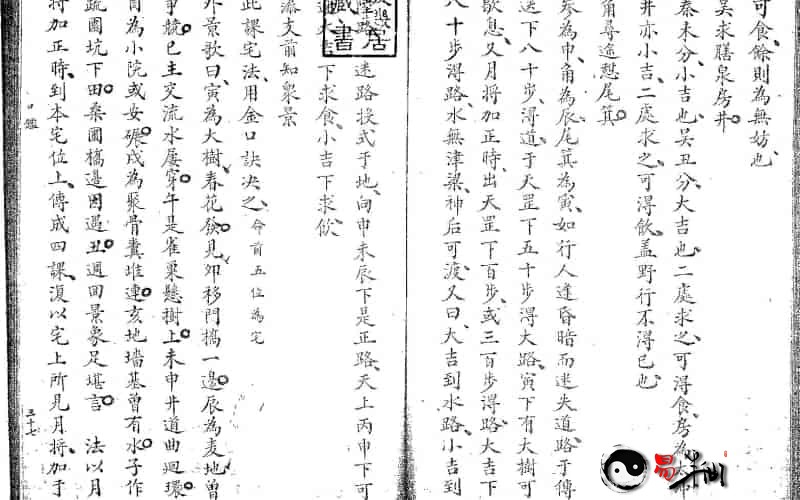 可食餘則為無妨也
吴求膳泉房井
秦未分小吉也吴丑分大吉也二處求之可得食房為
井亦小吉二處求之可得飲盖野行不得已也
角尋途憩尾箕
參為申角為辰尾箕為寅如行人逢昏暗而迷失道路于傳
送下八十步得道于天罡下五十步得大路寅下有大樹可
歇息又月將加正時出天罡下百步或三百步得路大吉下
八十步得路水無津梁神后可渡又曰大吉到水路小吉到
迷路投式于地向申未辰下是正路天上丙申下可
下求食小吉下求飲
文前知眾景
此課宅法用金口訣決之命前五位為宅
外景歌曰寅為大樹春花發見夘移門橋一邊辰為麦地曾
爭競巳主交流水屡穿午是雀巢懸樹上未申井道曲迴環
酉為小院或女碾戌為聚骨糞堆連亥地墻基曾有水子作
蔬園坑下田桑園橋邊因過丑週回景象足堪言 法以月
將加正時到本宅位上傳成四課復以宅上所見月將加于
三十七
藏書
居
易